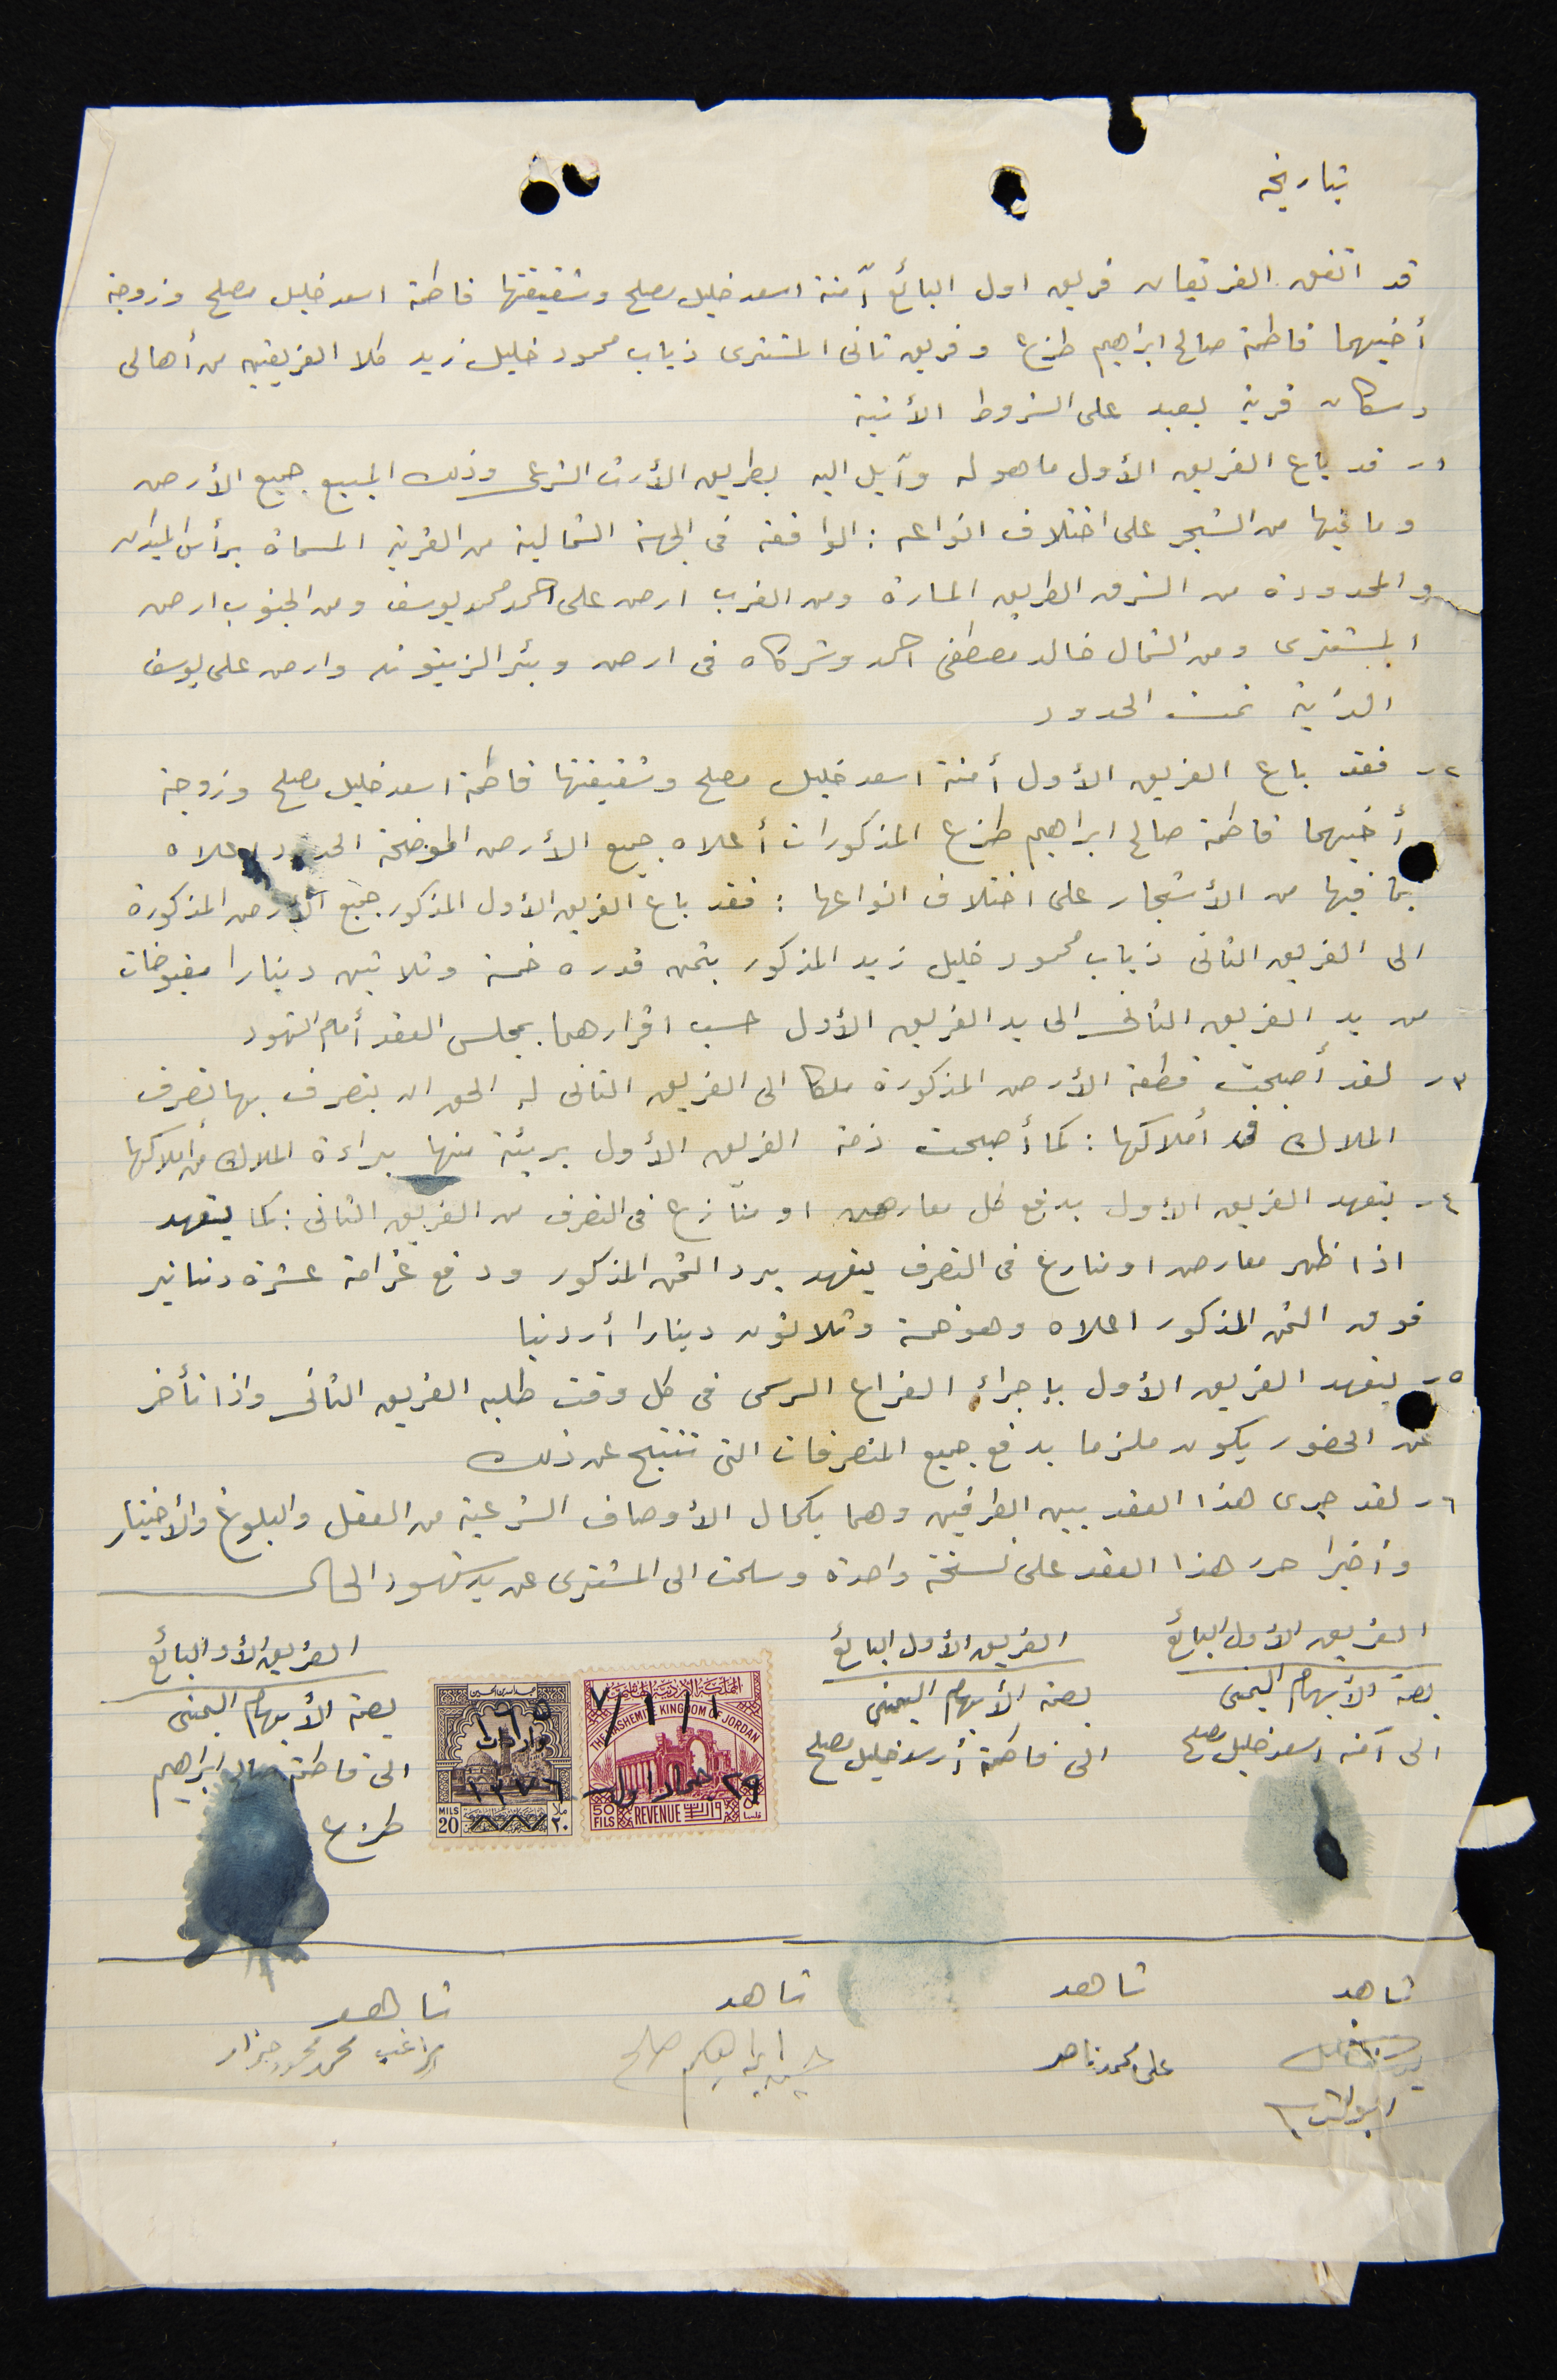 بتاريخه
قد اتفق الفريقان فريق اول البائع آمنة اسعد خليل مصلح وشقيقتها فاطمة اسعد خليل مصلح وزوجة
أخيهما فاطمة صالح ابراهيم طزع وفريق ثانى المشترى ذياب محمود خليل زيد كلا الفريقين من أهالى
وسكان قرية يعبد على الشروط الأتية
١- قد باع الفريق الأول ما هو له وآيل اليه بطريق الأرث الشرعى وذلك المبيع جميع الأرض
وما فيها من الشجر على اختلاف انواعه : الواقعة فى الجهة الشمالية من القرية المسماة برأس الميدان
والمحدودة من الشرق الطريق المارة ومن الغرب ارض على احمد محمد يوسف ومن الجنوب ارض
المشترى ومن الشمال خالد مصطفى احمد وشركاه فى ارض وبئر الزيتونه وارض على يوسف
تمت الحدود
٢- فقد باع الفريق الأول أمنة اسعد خليل مصلح وشقيقتها فاطمة اسعد خليل مصلح وزوجة
أخيهما فاطمة صالح ابراهيم طزع المذكورات أعلاه جميع الأرض الموضحة الحدود اعلاه
بما فيها من الأشجار على اختلاف انواعها : فقد باع الفريق الأول المذكور جميع الأرض المذكورة
الى الفريق الثانى ذياب محمود خليل زيد المذكور بثمن قدره خمسة وثلاثين دينارا مقبوضات
من يد الفريق الثانى الى يد الفريق الأول حسب اقرارهما بمجلس العقد أمام الشهود
٣- لقد أصبحت قطعة الأرض المذكورة ملكا الى الفريق الثانى له الحق ان يتصرف بها تصرف
الملاك فى أملاكها : كما أصبحت ذمة الفريق الأول بريئة منها براءة الملاك من أملاكها
٤- يتعهد الفريق الأول بدفع كل معارض او منازع فى التصرف من الفريق الثانى : كما يتعهد
اذا ظهر معارض او منازع فى التصرف يتعهد برد الثمن المذكور ودفع غرامة عشرة دنانير
فوق الثمن المذكور اعلاه وهو خمسة وثلاثون دينارا أردنيا
٥- يتعهد الفريق الأول بإجراء الفراغ الرسمى فى كل وقت طلبه الفريق الثانى واذا تأخر
عن الحضور يكون ملزما بدفع جميع المتصرفات التى تنتج عن ذلك
٦- لقد جرى هذا العقد بين الطرفين وهما بكمال الأوصاف الشرعية من العقل والبلوغ والأختيار
وأخيرا حرر هذا العقد على نسخة واحدة وسلمت الى المشترى عن يد شهود الحال
الفريق الأول البائع الفريق الأول البائع الفريق الأو البائع
بصمة الأبهام اليمنى بصمة الأبهام اليمنى بصمة الأبهام اليمنى
الى آمنه اسعد خليل مصلح الى فاطمة أسعد خليل مصلح الى فاطمة صالح ابراهيم
طزع
المملكة الاردنية الهاشمية
THE HASHEMITE KINGDOM OF JORDAN
٢٩ جماد اول
50 FILS REVENUE واردات ٥٠ فلسا
واردات
١٣٧٦
MILS 20 ٢٠ ملا
شاهد شاهد شاهد شاهد
على محمد ناصر ابراهيم صالح محمد محمود